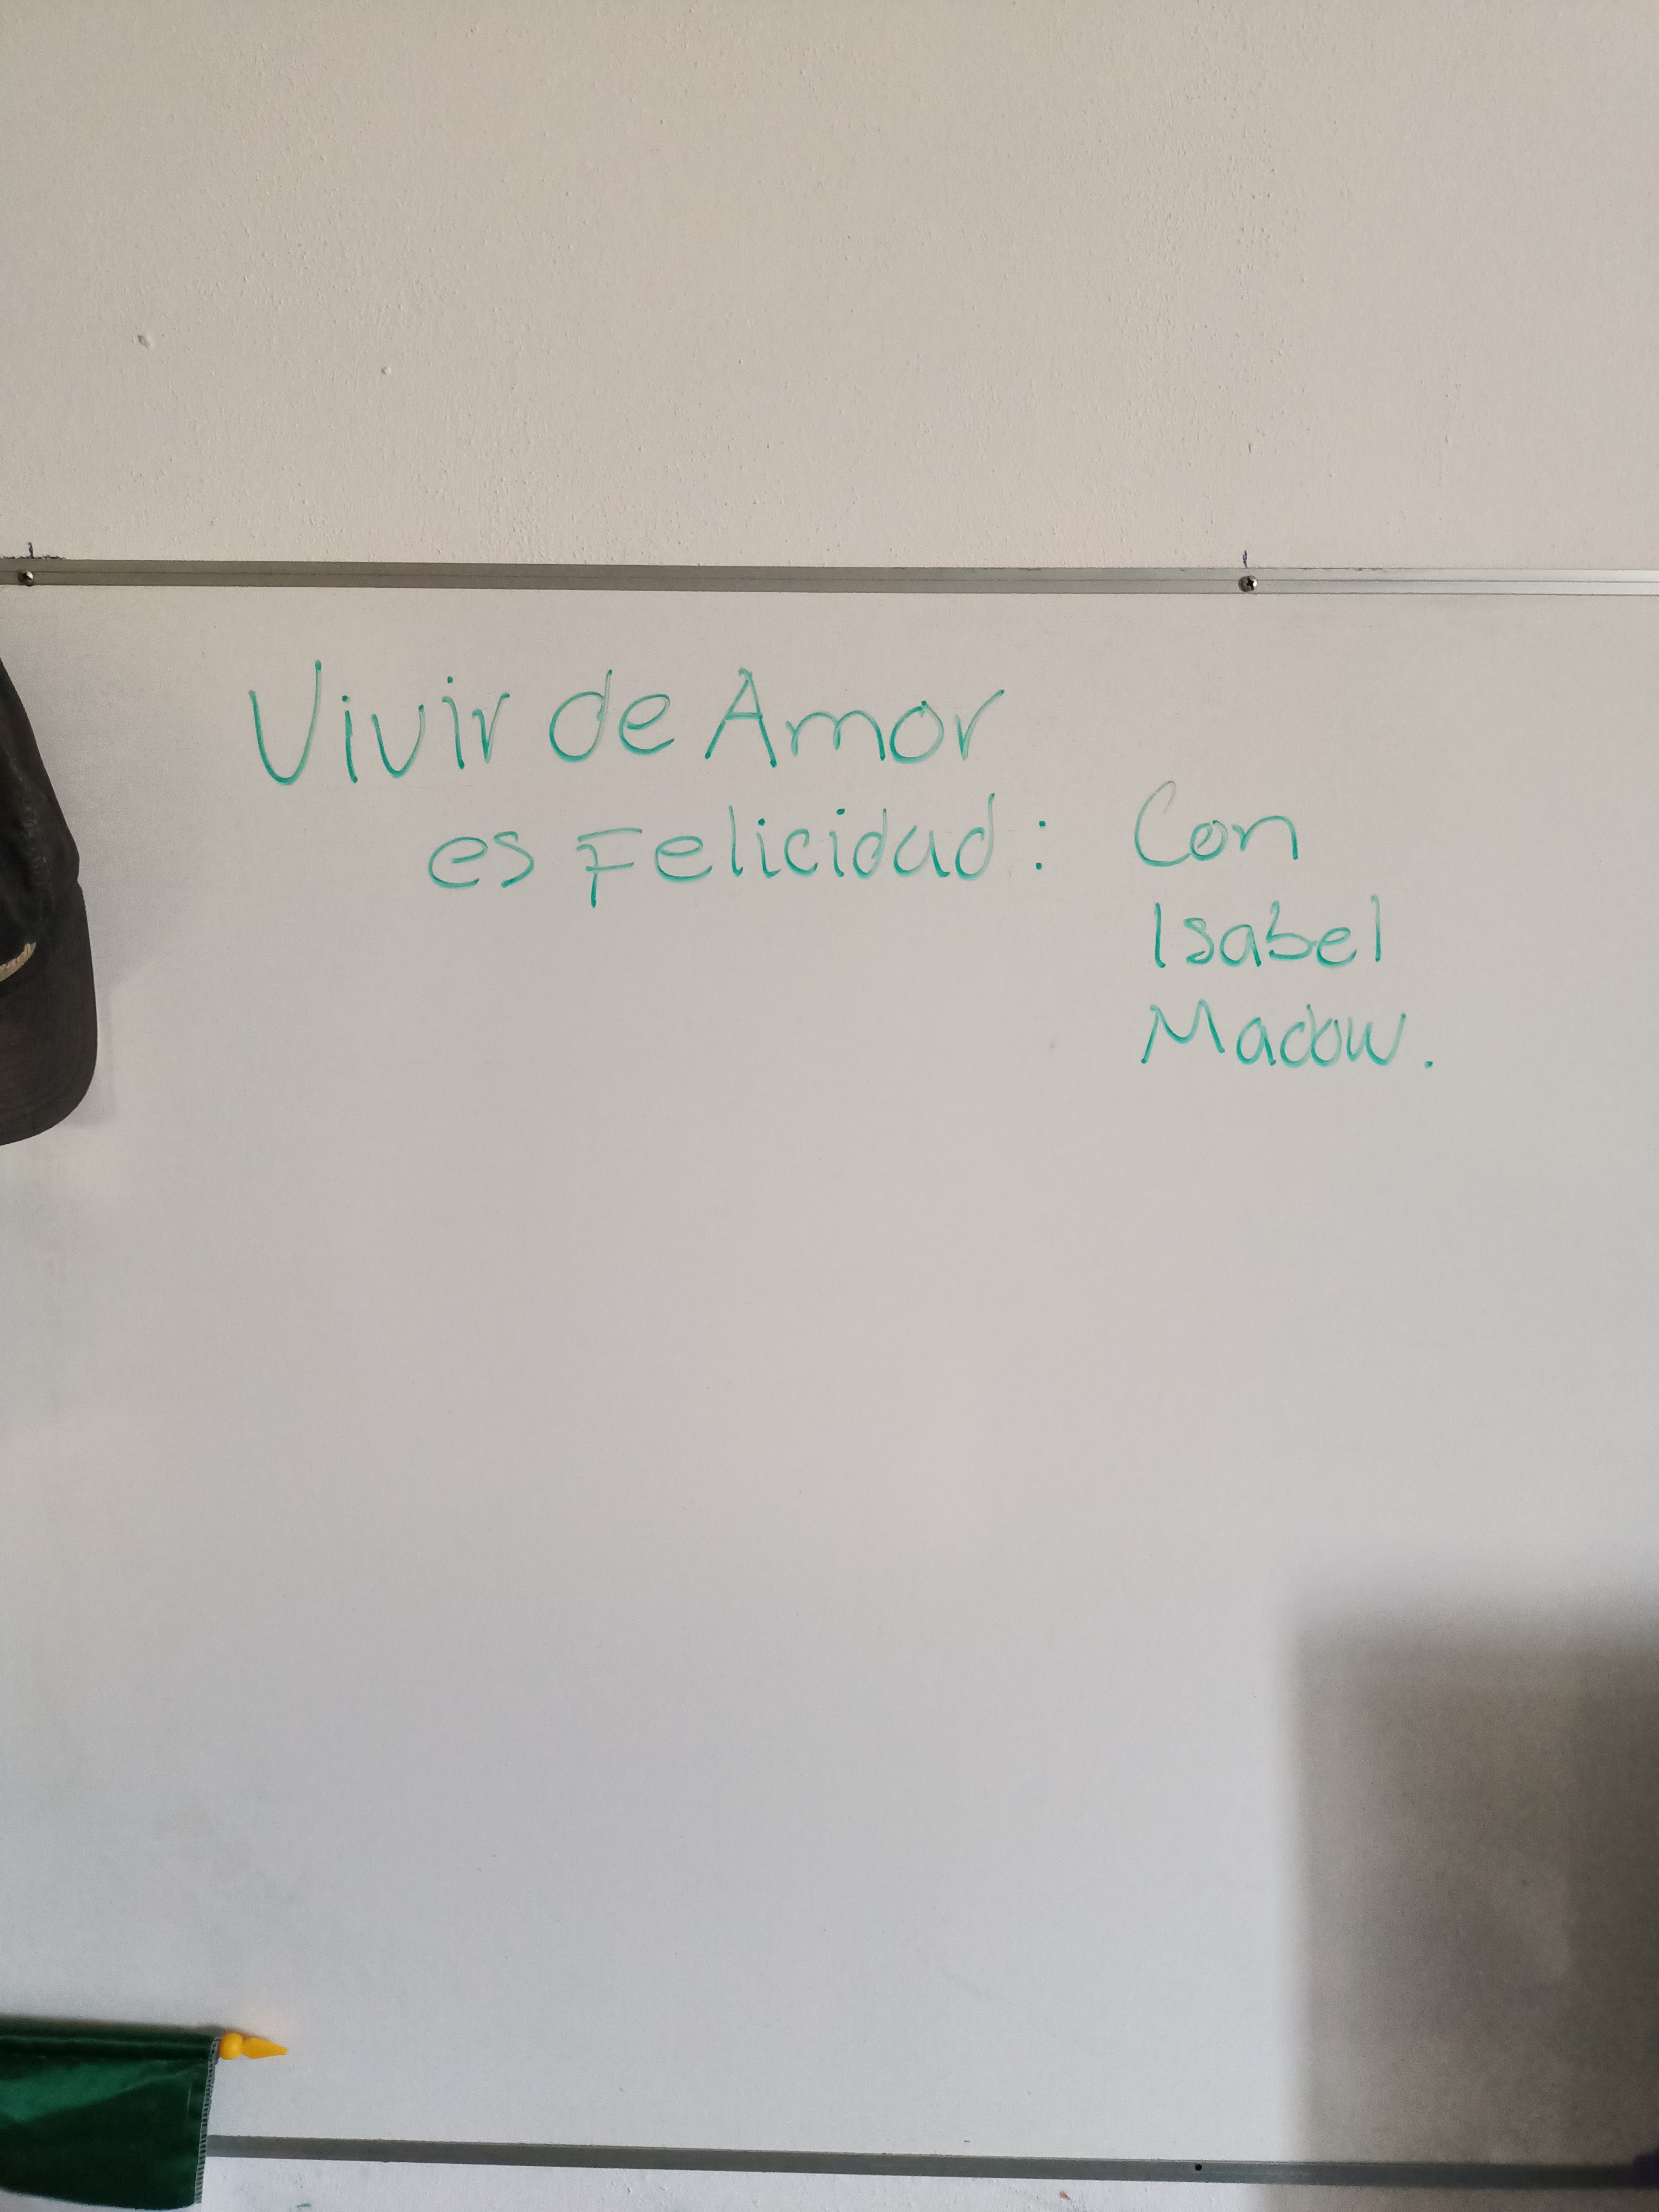 Vivir de Amor
es Felicidad: Con
Isabel
Madow.